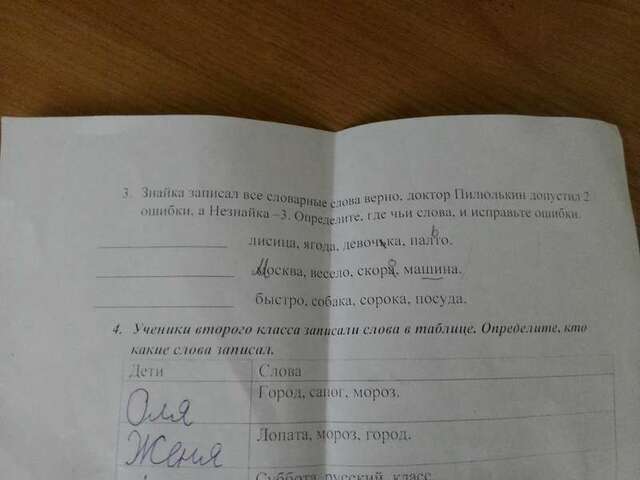 3. Знайка записал все словарные слова верно, доктор Пилюлькин допустил 2
ошибки, а Незнайка –3. Определите, где чьи слова, и исправьте ошибки.
лисица, ягода, девочька, палто.
ь
Москва, весело, скора, машина.
быстро, собака, сорока, посуда.
4. Ученики второго класса записали слова в таблице. Определите, кто
какие слова записал.
Дети Слова
Оля Город, сапог, мороз.
Женя Лопата, мороз, город.
Суббота, русский, класс.